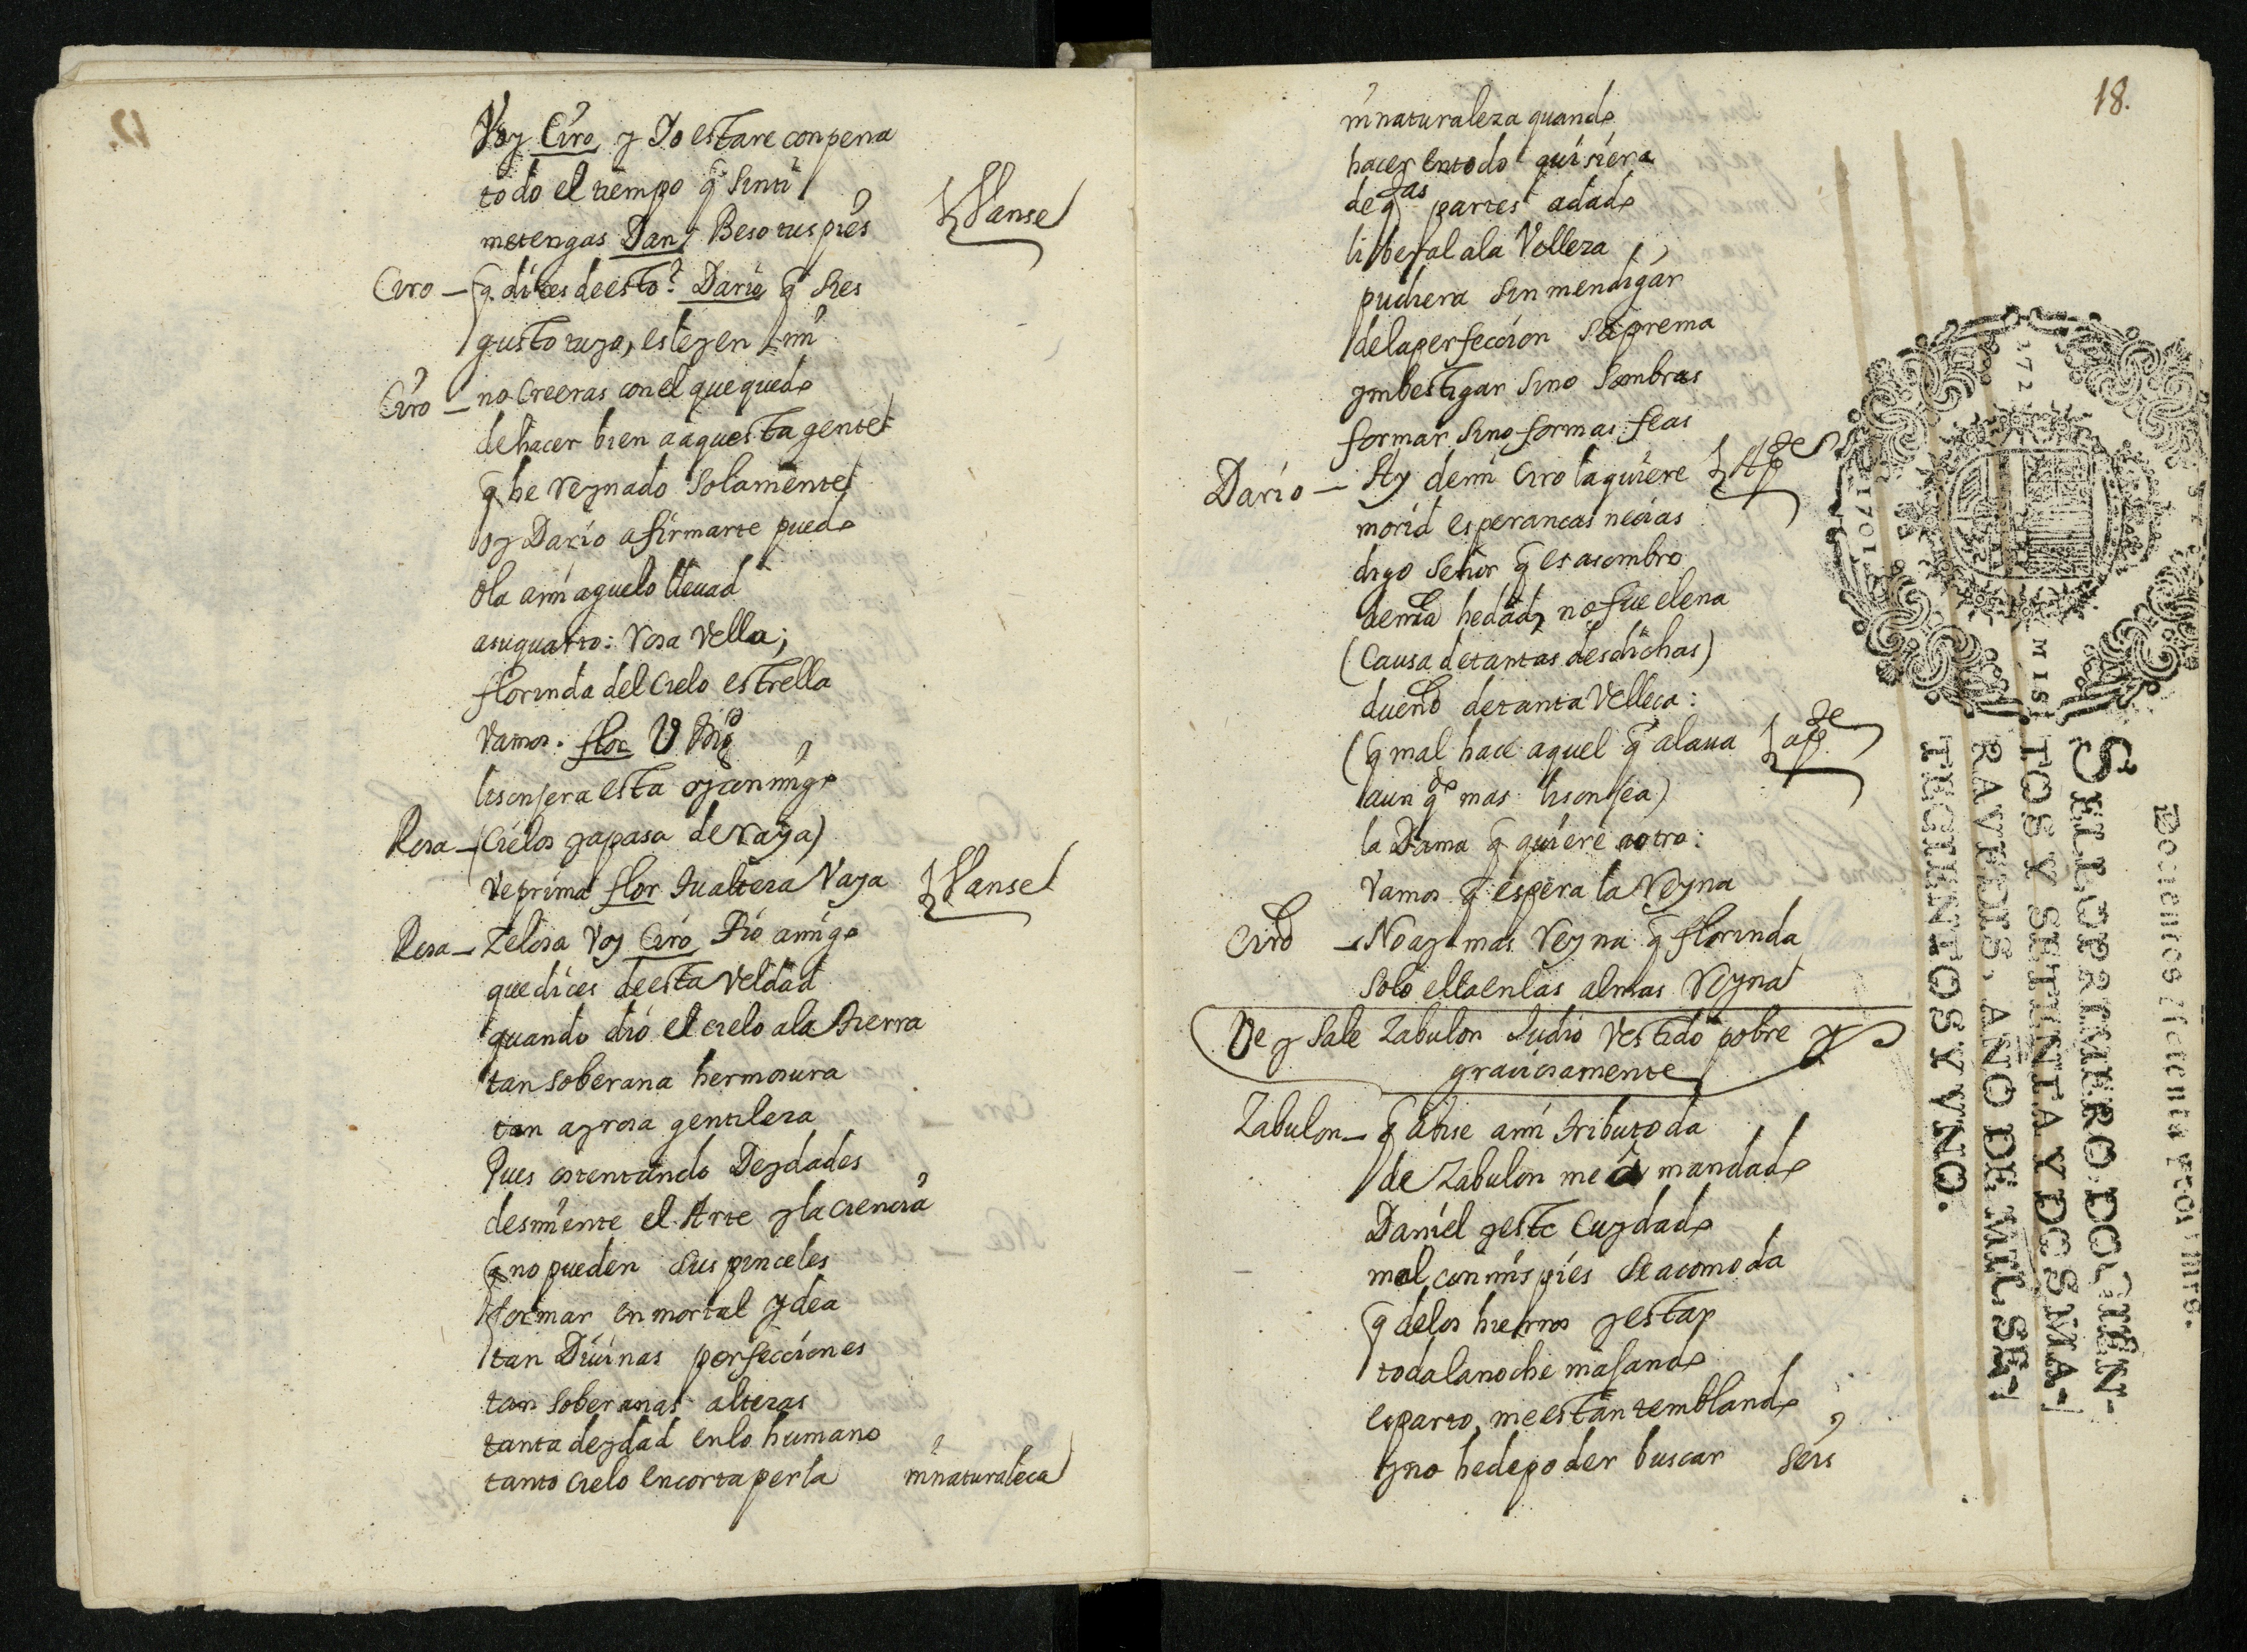 Voy Ciro y Yo estare con pena
todo el tiempo q̃ sin ti
me tengas Dan Beso tus pies Vanse
Ciro – q̃ dices de esto? Dario q̃ si es
gusto tuyo, es ley en mi
Ciro – no creeras con el que quedo
de hacer bien a aquesta gente
q̃ he reynado solamente
oy Dario afirmarte puedo
ola a mi aguelo lleuad
a su quarto: Rosa vella;
florinda del cielo estrella
vamos. flor V Mg.d
lisonjera esta oy conmigo
Rosa – (Cielos ya pasa de raya)
ve prima flor tu alteza vaya Vanse
Rosa – Zelosa voy Ciro Tio amigo
que dices de esta veldad
quando dio el cielo a la tierra
tan soberana hermosura
tan ayrosa gentileza
Pues ostentando Deydades
desmiente el Arte y la ciencia
q̃ no pueden sus pinceles
formar en mortal ydea
tan Diuinas perfecciones
tan soberanas altezas
tanta deydad en lo humano
tanto cielo en corta perla
mi naturaleca
18.
mi naturaleza quando
hacer en todo quisiera
de q̃ las partes a dado
liberal a la velleza
pudiera sin mendigar
de la perfeccion suprema
ymbestigar sino sombras
formar sino formas feas
Dario – Ay de mi Ciro la quiere Ap.te
morid esperancas necias
digo señor q̃ es asombro
de mia hedad, no fue elena
(Causa de tantas desdichas)
dueño de tanta velleca:
(q̃ mal hace aquel q̃ alaua ap.te
aun q.do mas lisonjea)
la Dama q̃ quiere a otro:
vamos q̃ espera la Reyna
Ciro – No ay mas Reyna q̃ florinda
solo ella en las almas Reyna
Ve y sale Zabulon Judio vestido pobre y
graciosamente
Zabulon – q̃ abise a mi tributo da
de Zabulon me a mandado
Daniel y este cuydado
mal con mis pies se acomoda
q̃ de los hierros y estar
toda la noche masando
esparto, me estan temblando
y no he de poder buscar seis
1701
SELLO PRIMERO. DOCIEN-
TOS Y SETENTA Y DOS MA-
RAVEDIS, AÑO DE MIL SE-
TECIENTOS Y VNO.